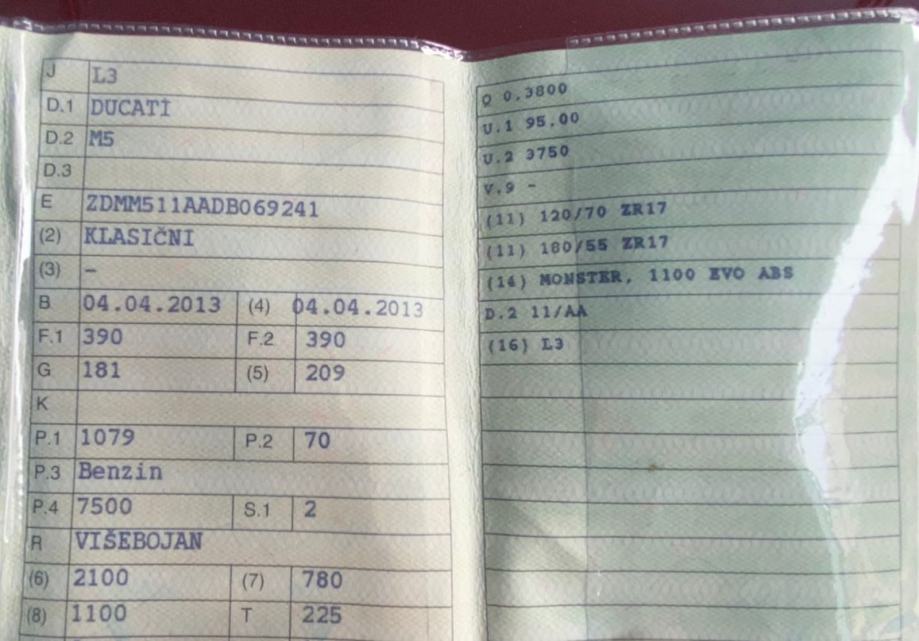 J L3
D.1 DUCATI
D.2 M5
D.3
E ZDMM511AADB069241
(2) KLASIČNI
(3) –
B 04.04.2013 (4) 04.04.2013
F.1 390 F.2 390
G 181 (5) 209
K
P.1 1079 P.2 70
P.3 Benzin
P.4 7500 S.1 2
R VIŠEBOJAN
(6) 2100 (7) 780
(8) 1100 T 225
Q 0.3800
U.1 95.00
U.2 3750
V.9 -
(11) 120/70 ZR17
(11) 180/55 ZR17
(14) MONSTER, 1100 EVO ABS
D.2 11/AA
(16) L3